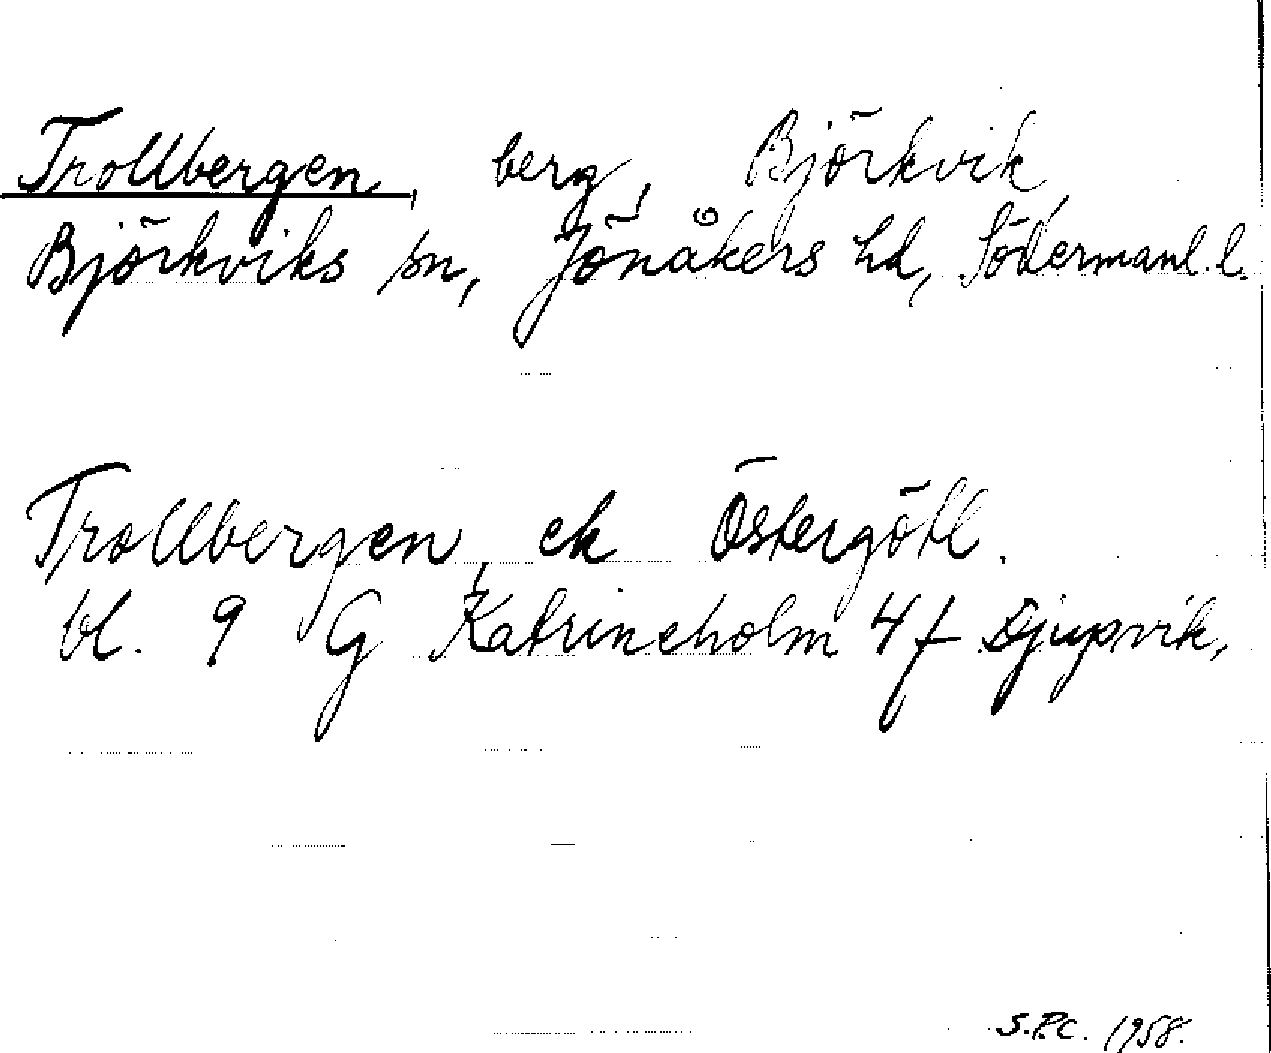 Trollbergen, berg, Björkvik,
Björkviks sn, Jönåkers hd, Södermanl. l.
Trollbergen, ek Östergötl.
bl. 9 G Katrineholm 4f Djupvik,
S.P.C. 1958.